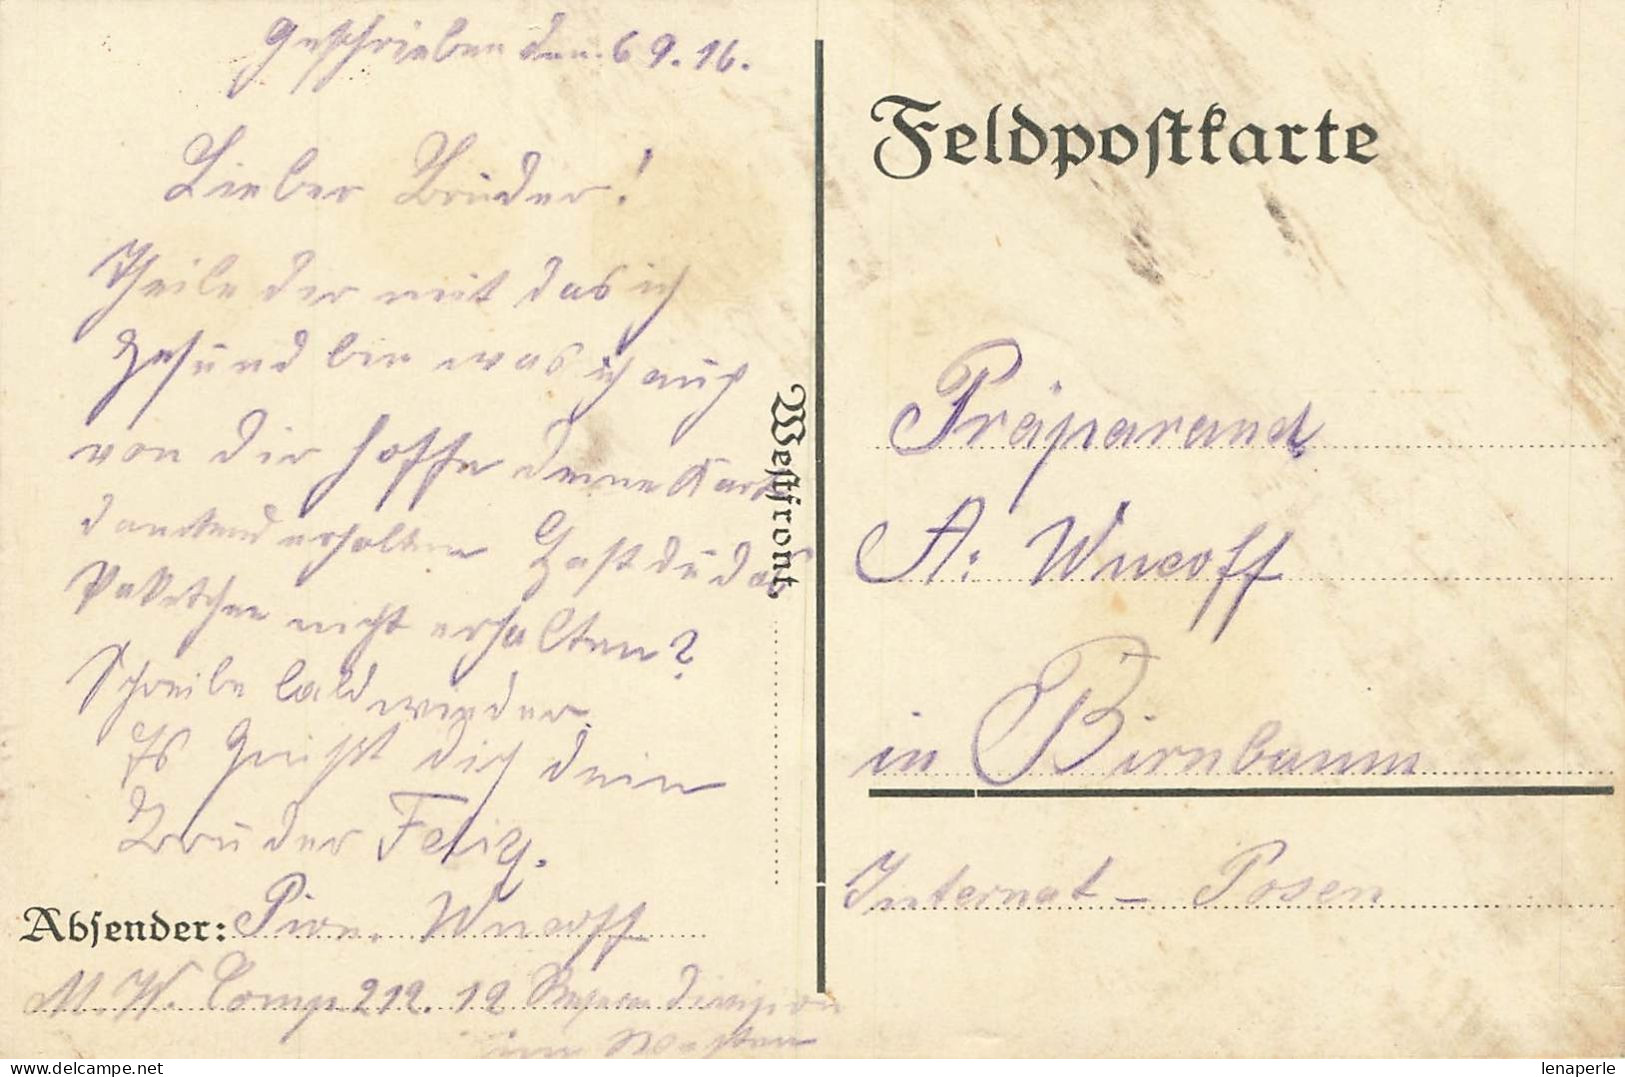 Geschrieben den 6 9. 16.
Lieber Brüder!
Theile der mit das ich
Gesund bin was ich auch
von dir hoffe deine Karte
dankend erhalten Hast dü das
Paketchen nicht erhalten?
Schreibe bald wieder.
Es Grüßt dich dein
Brüder Felix.
Absender: Pion. Wucoff
M. W. Comp. 212. 12 Reserve Division
im Westen
Westfront,
Feldpostkarte
Präparand
A. Wucoff
in Birnbaum
Internat - Posen
lenaperle